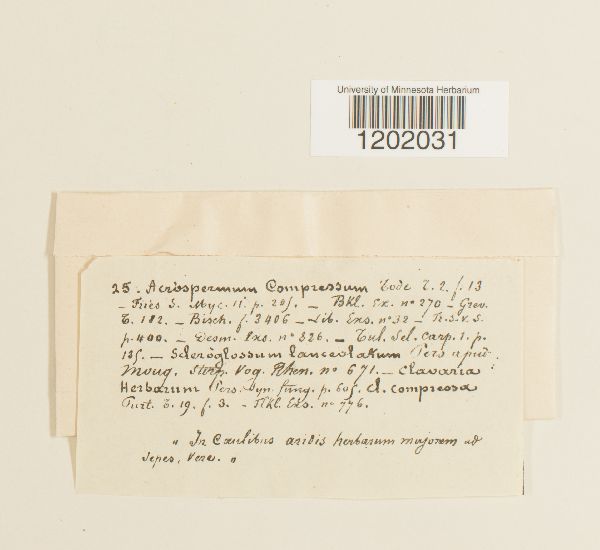 University of Minnesota Herbarium
1202031
25. Acrospermum Compressum Tode T. 2. f. 13
- Fries S. Myc. II. p. 245. - Bkl. Ex. nº 270 - Grev.
T. 182. - Bisch. f. 3406 - Lib. Exs. nº 32 - Fr. S. V. S.
p. 400. - Desm. Exs. nº 326. - Tul. Sel. Carp. 1. p.
- Scleroglossum lanceolatum Pers apud
Moug. Stirp. Vog. Rhen. nº 671. - Clavaria
Herbarum Pers. Syn. fung. p. 605. Cl. compressa
T. 19. f. 3. - Exs. nº 776.
" In Caulibus aridis herbarum majorem ad
Sepes, Vere. "